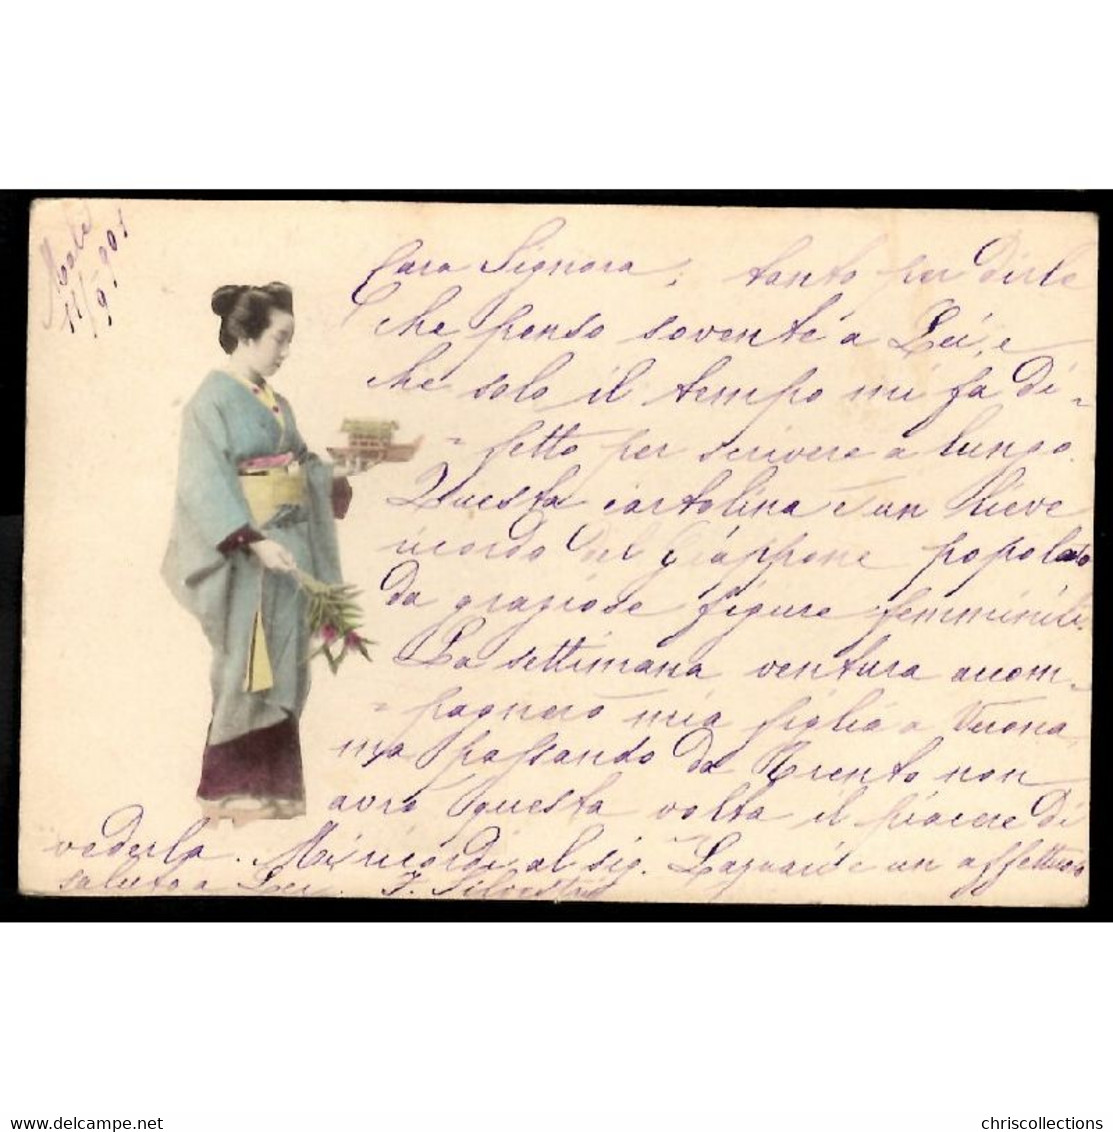 Malè
11/9 901
Cara Signora, tanto per dirle
che penso sovente a Lei, e
che solo il tempo mi fa di-
-fetto per scrivere a lungo.
Questa cartolina è un lieve
ricordo del Giappone popolato
da graziose figure femminili.
La settimana ventura accom-
-pagnerò mia figlia a Verona
ma passando da Trento non
avrò questa volta il piacere di
vederla. Mi ricordi al sig. e un affettuoso
saluto a Lei. Silvestri
delcampe.net
chriscollections